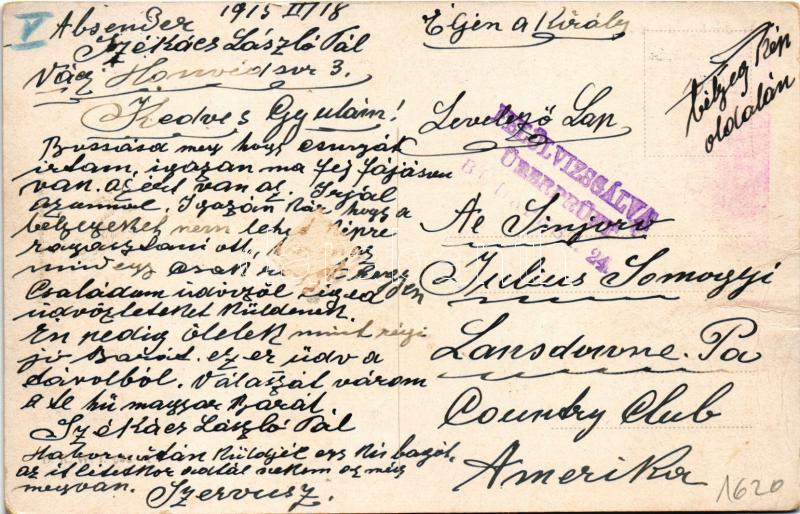 V
1915 III/18
Absender
Székács László Pál
Váci Honvéd sor 3.
Kedves Gyulám!
Bossásd meg hogy csunyán
irtam, igazan ma fej fájásom
van. azért van az. Irjál
azonnal. Igazán kár hogy a
bélyegeket nem lehet képre
ragasztani ott,
mindegy csak
Családom üdvözöl téged
üdvözleteket küldenek.
Én pedig ölelek mint régi
jó Barát. ezer üdv a
távolból. Válaszát várom
a te hű magyar Barát
Székács László Pál
Háboru után küldjél egy kis bagót,
az itt létetkor adtál nekem az még
megvan. Szervusz.
Éljen a Király
Levelező Lap
bélyeg kép
oldalán
FELÜLVIZSGÁLVA
ÜBERPRÜFT
24.
Ae Sinjoro
Julius Somogyi
Lansdowne. Pa
Country Club
Amerika
1620